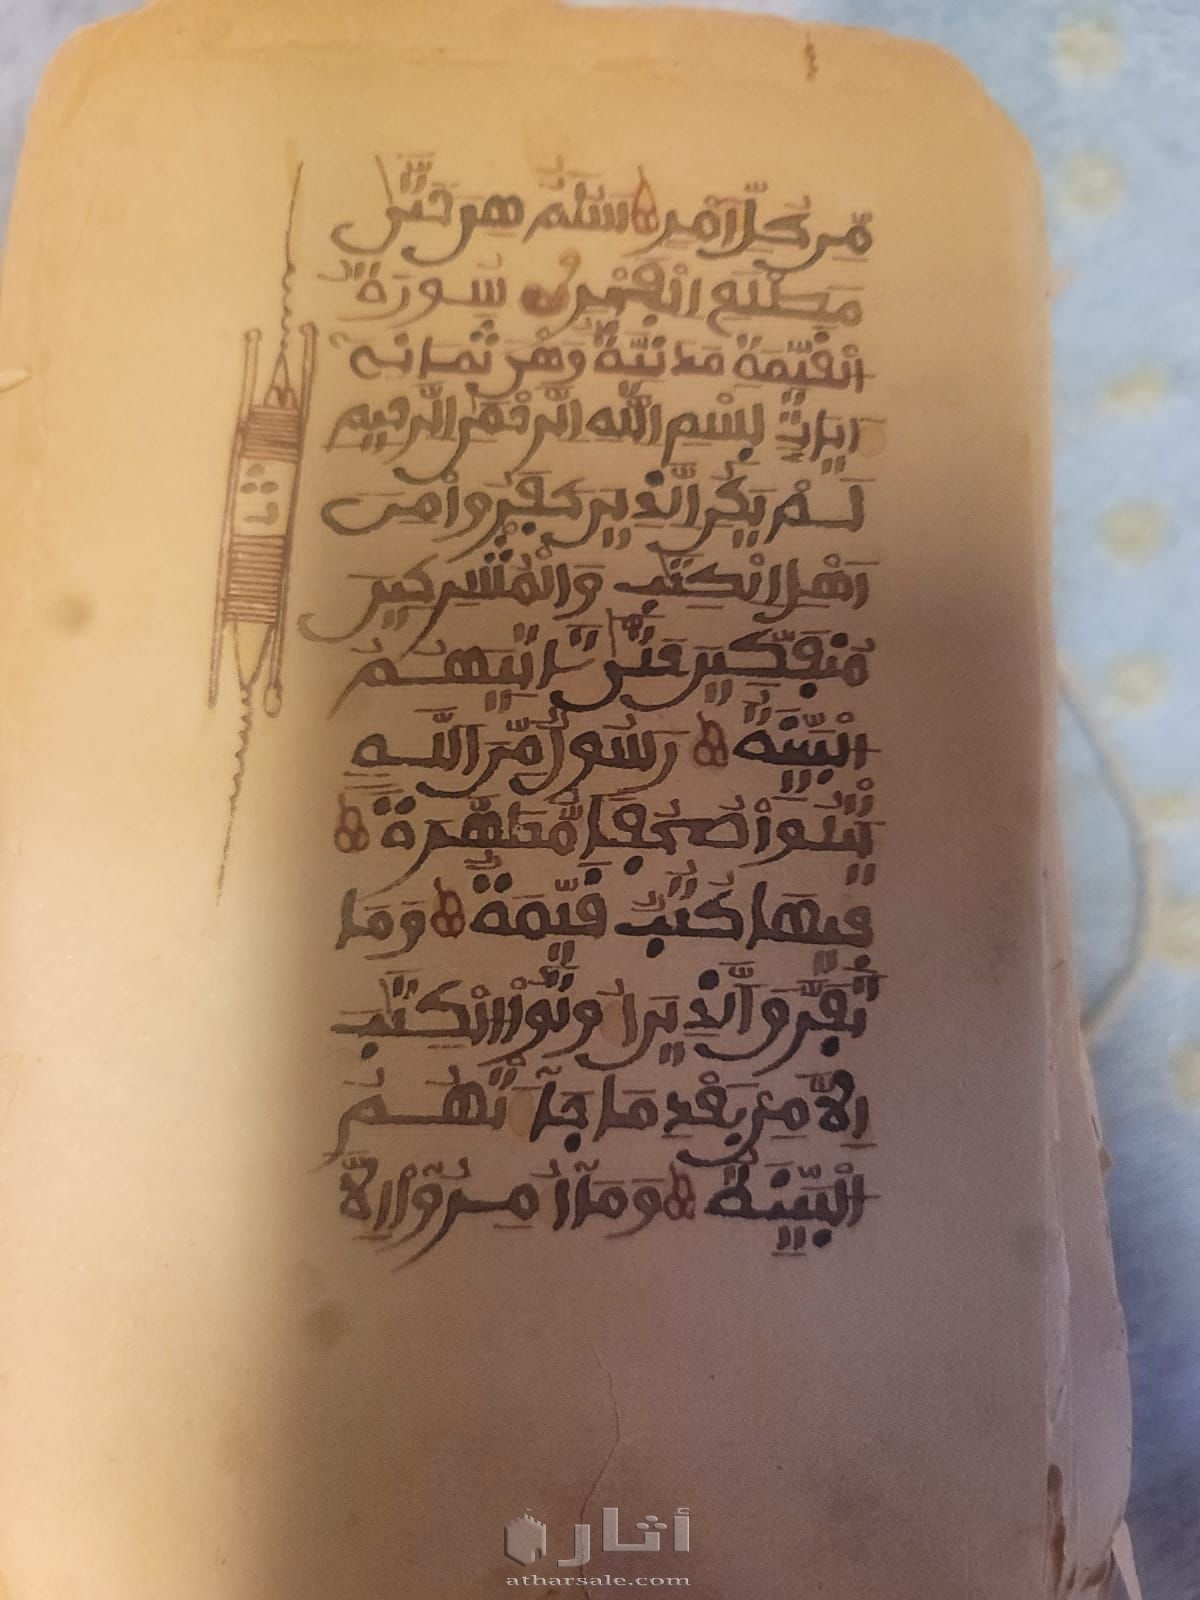 مِّن كُلِّ أَمْرٍ سَلَٰمٌ هِىَ حَتَّىٰ
مَطْلَعِ الْفَجْرِ سُورَةُ
الْقَيِّمَةِ مَدَنِيَّةٌ وَهْىَ ثَمَانِيَ
ءَايَاتٍ بِسْمِ اللَّهِ الرَّحْمَٰنِ الرَّحِيمِ
لَمْ يَكُنِ الَّذِينَ كَفَرُوا مِنْ
أَهْلِ الْكِتَٰبِ وَالْمُشْرِكِينَ
مُنفَكِّينَ حَتَّىٰ تَاتِيَهُمُ
الْبَيِّنَةُ رَسُولٌ مِّنَ اللَّهِ
يَتْلُوا صُحُفًا مُّطَهَّرَةً
فِيهَا كُتُبٌ قَيِّمَةٌ وَمَا
تَفَرَّقَ الَّذِينَ أُوتُوا الْكِتَٰبَ
إِلَّا مِنۢ بَعْدِ مَا جَآءَتْهُمُ
الْبَيِّنَةُ وَمَآ أُمِرُوٓا إِلَّا
أثار
atharsale.com